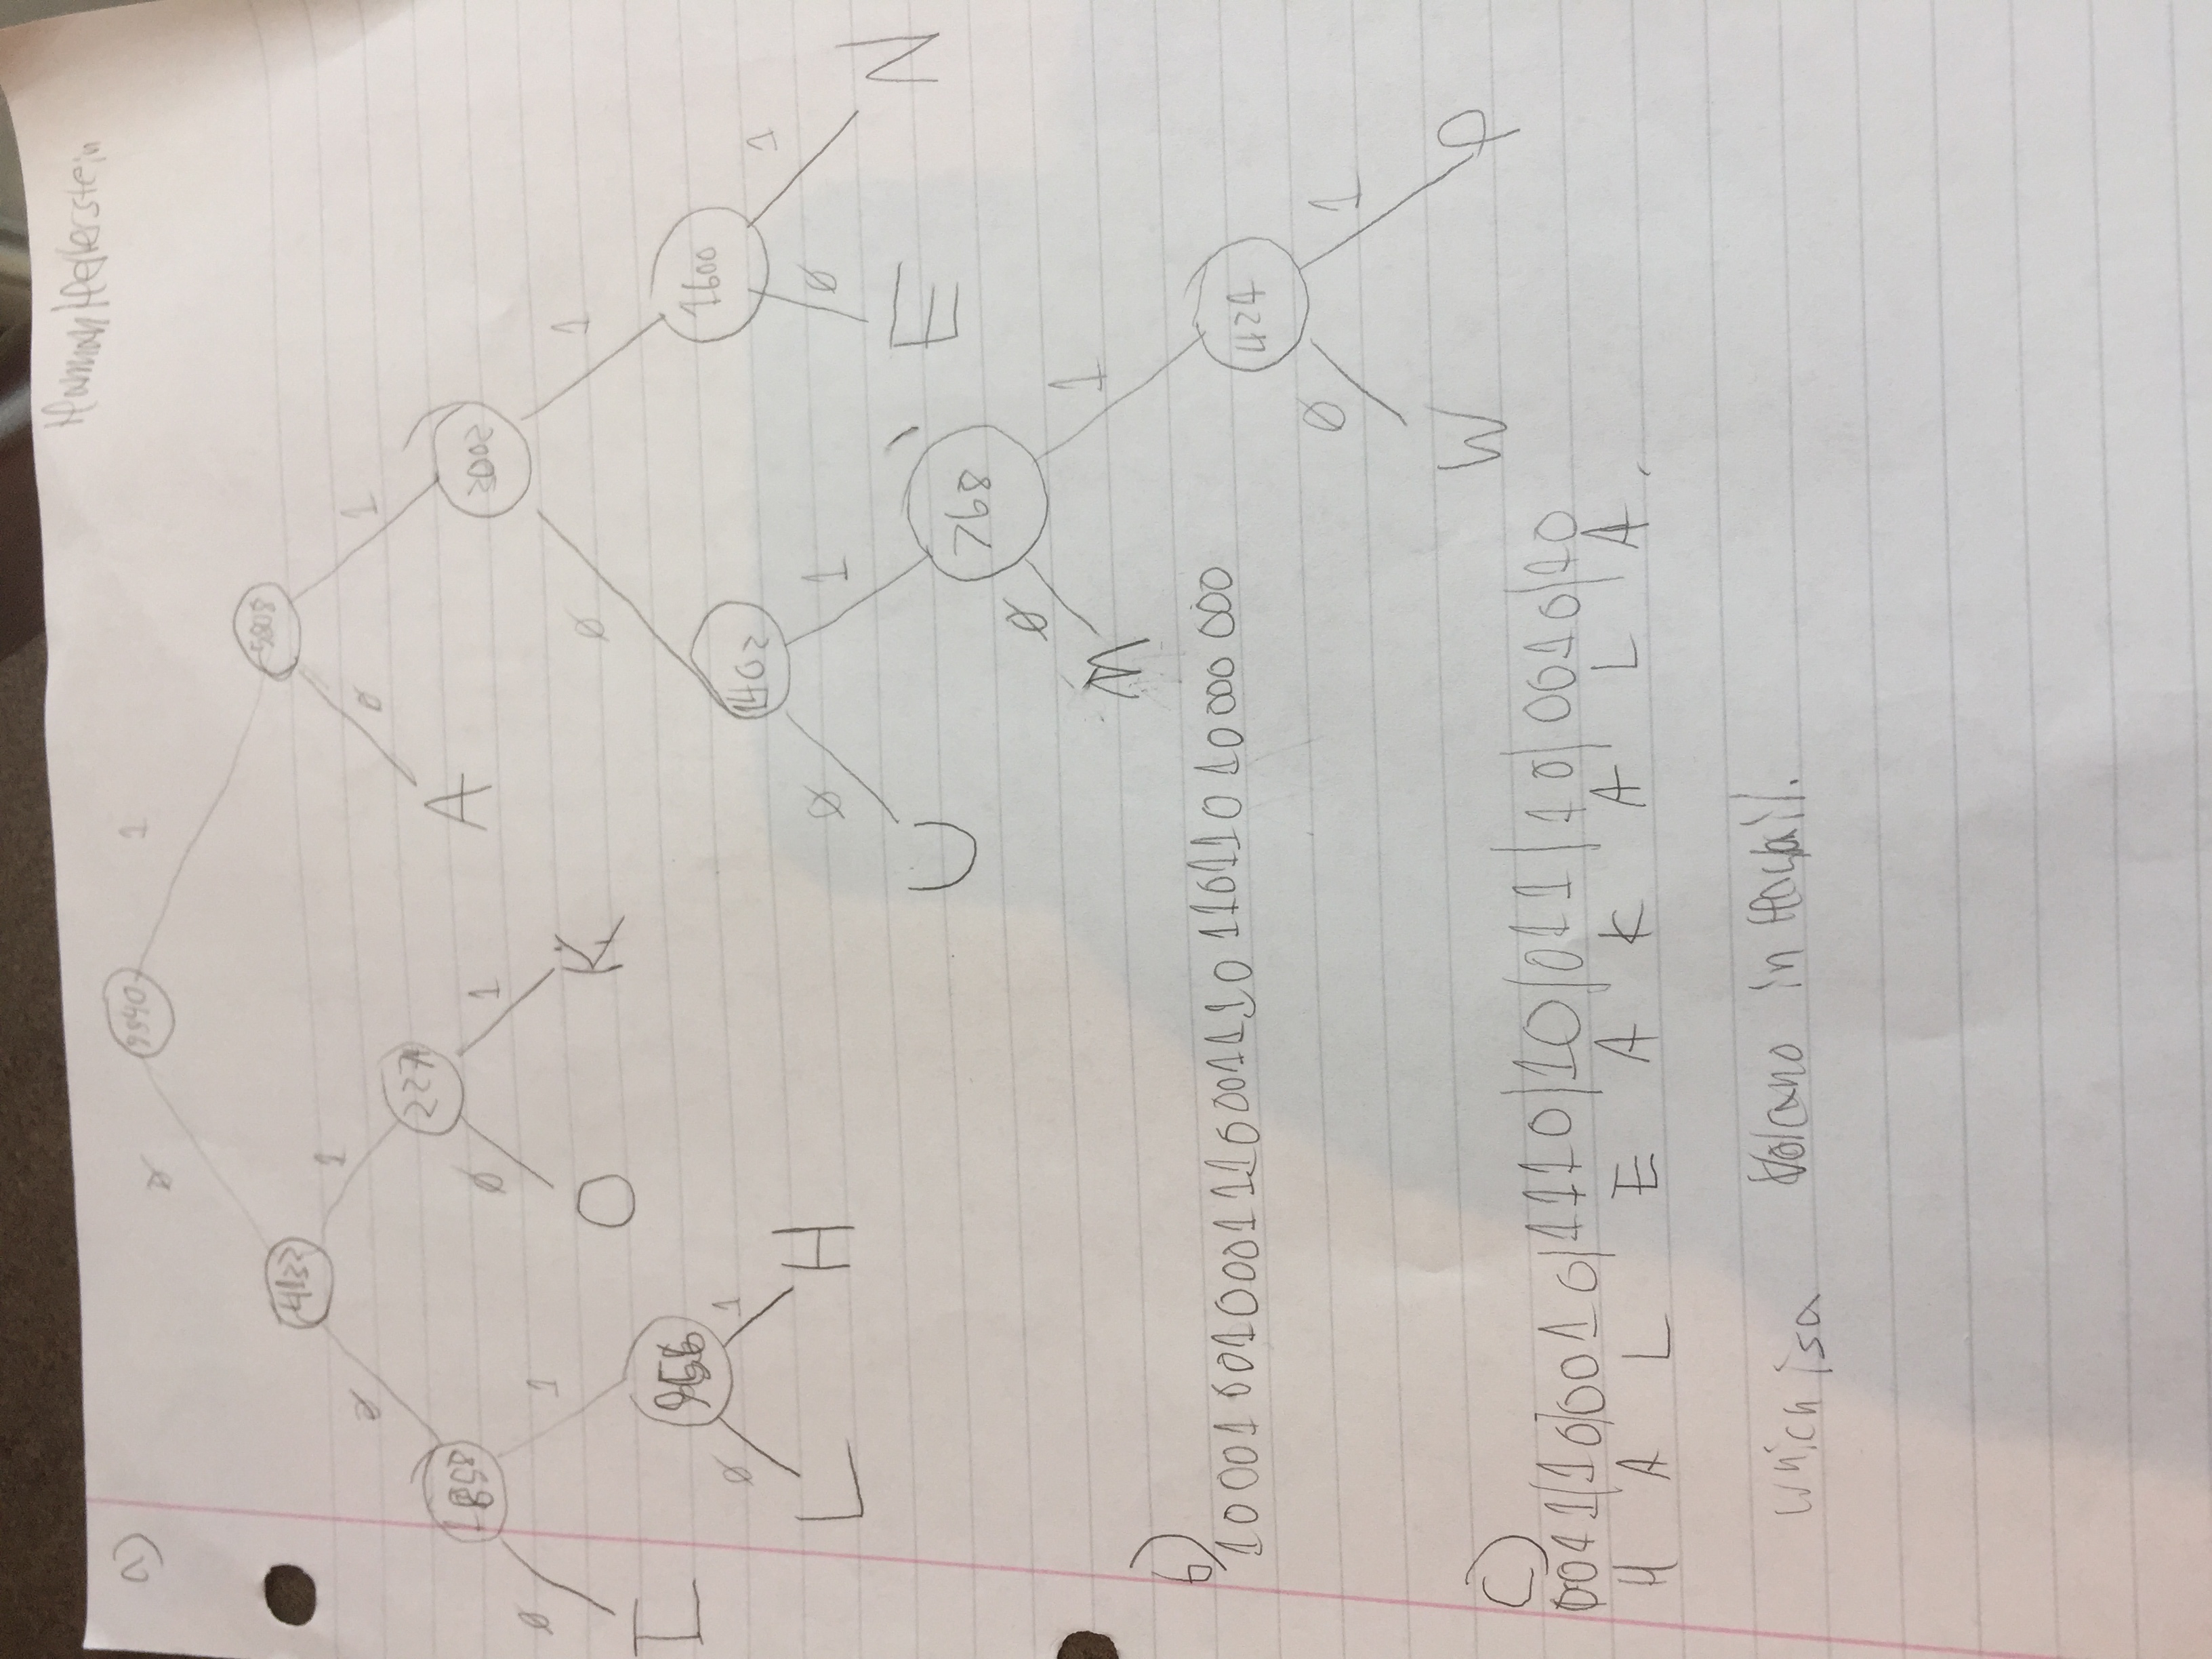 Hannah Hellerstein
a)
9940
0 1
4132 5808
0 1 0 1
1858 2274 A 3002
0 1 0 1 0 1
I 956 O K 1402 1600
0 1 0 1 0 1
L H U 768 E N
0 1
M 424
0 1
W P
b)
10 001 0010001110001110 110110 10000 000
c)
0011|10|0010|1110|10|011|10|0010|10
H A L E A K A L A.
which is a Volcano in Hawaii.